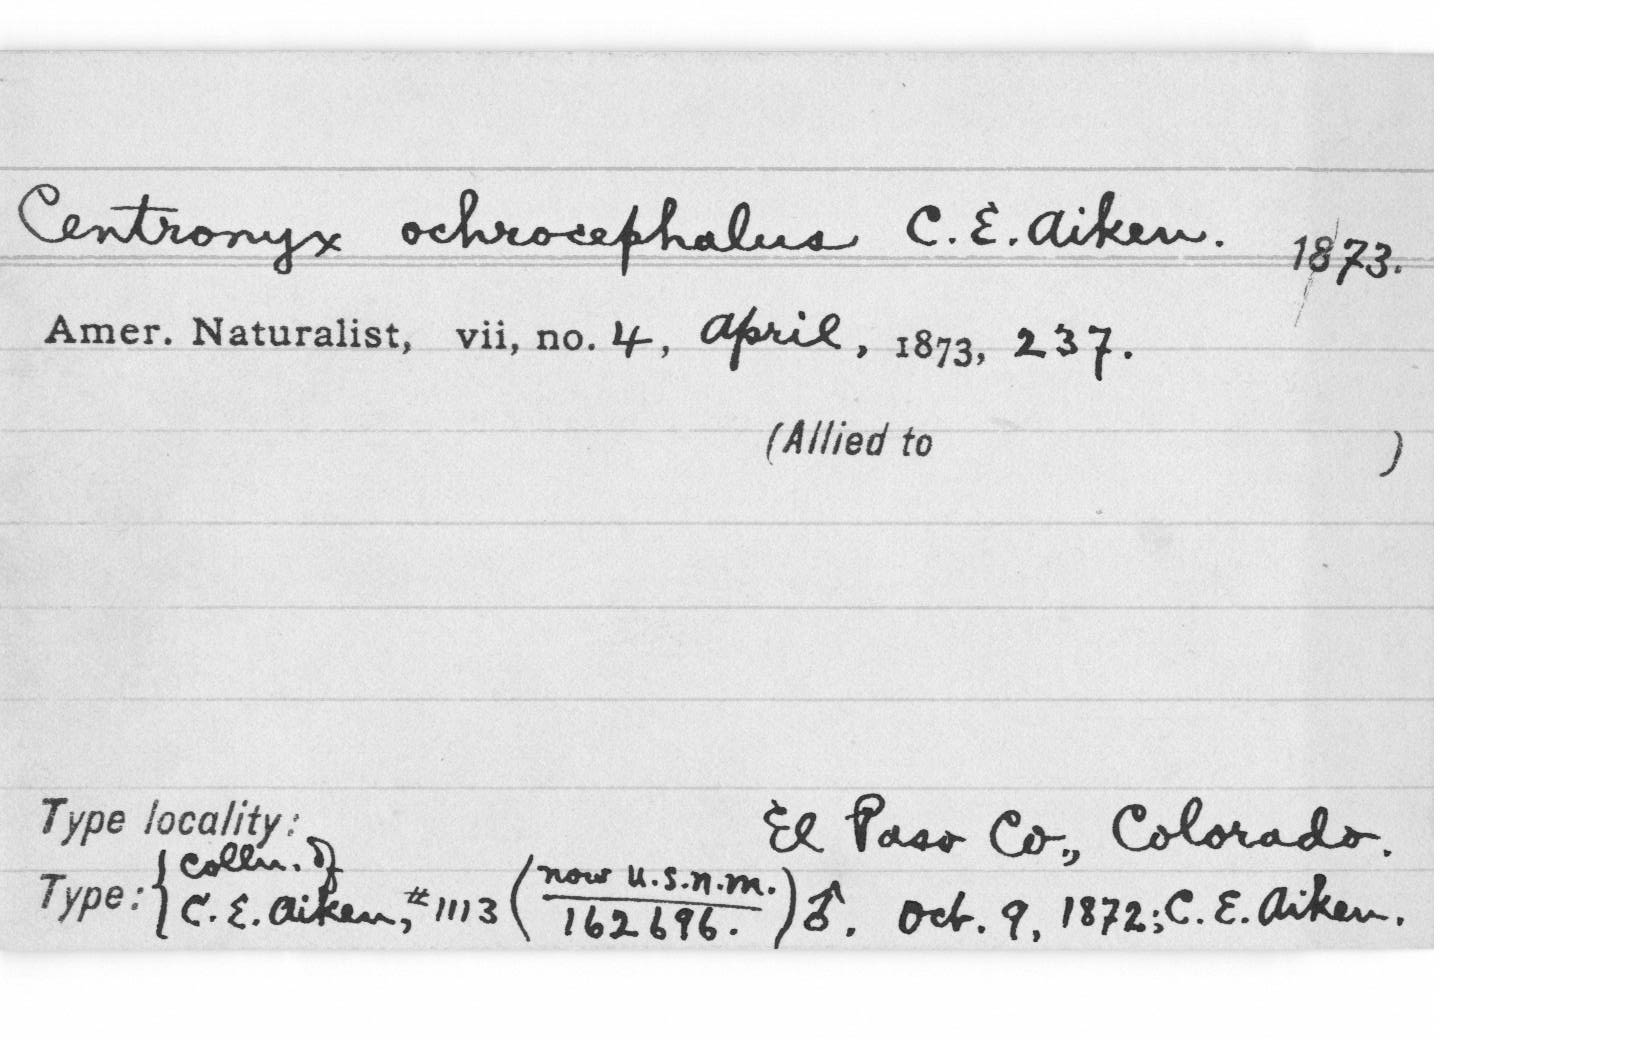 Centronyx ochrocephalus C. E. Aiken. 1873.
Amer. Naturalist, vii, no. 4, April, 1873, 237.
(Allied to )
Type locality: El Paso Co., Colorado.
Type: { Colln. of C. E. Aiken, #1113 (now U.S.N.M. 162696.) ♂. Oct. 9, 1872; C. E. Aiken.